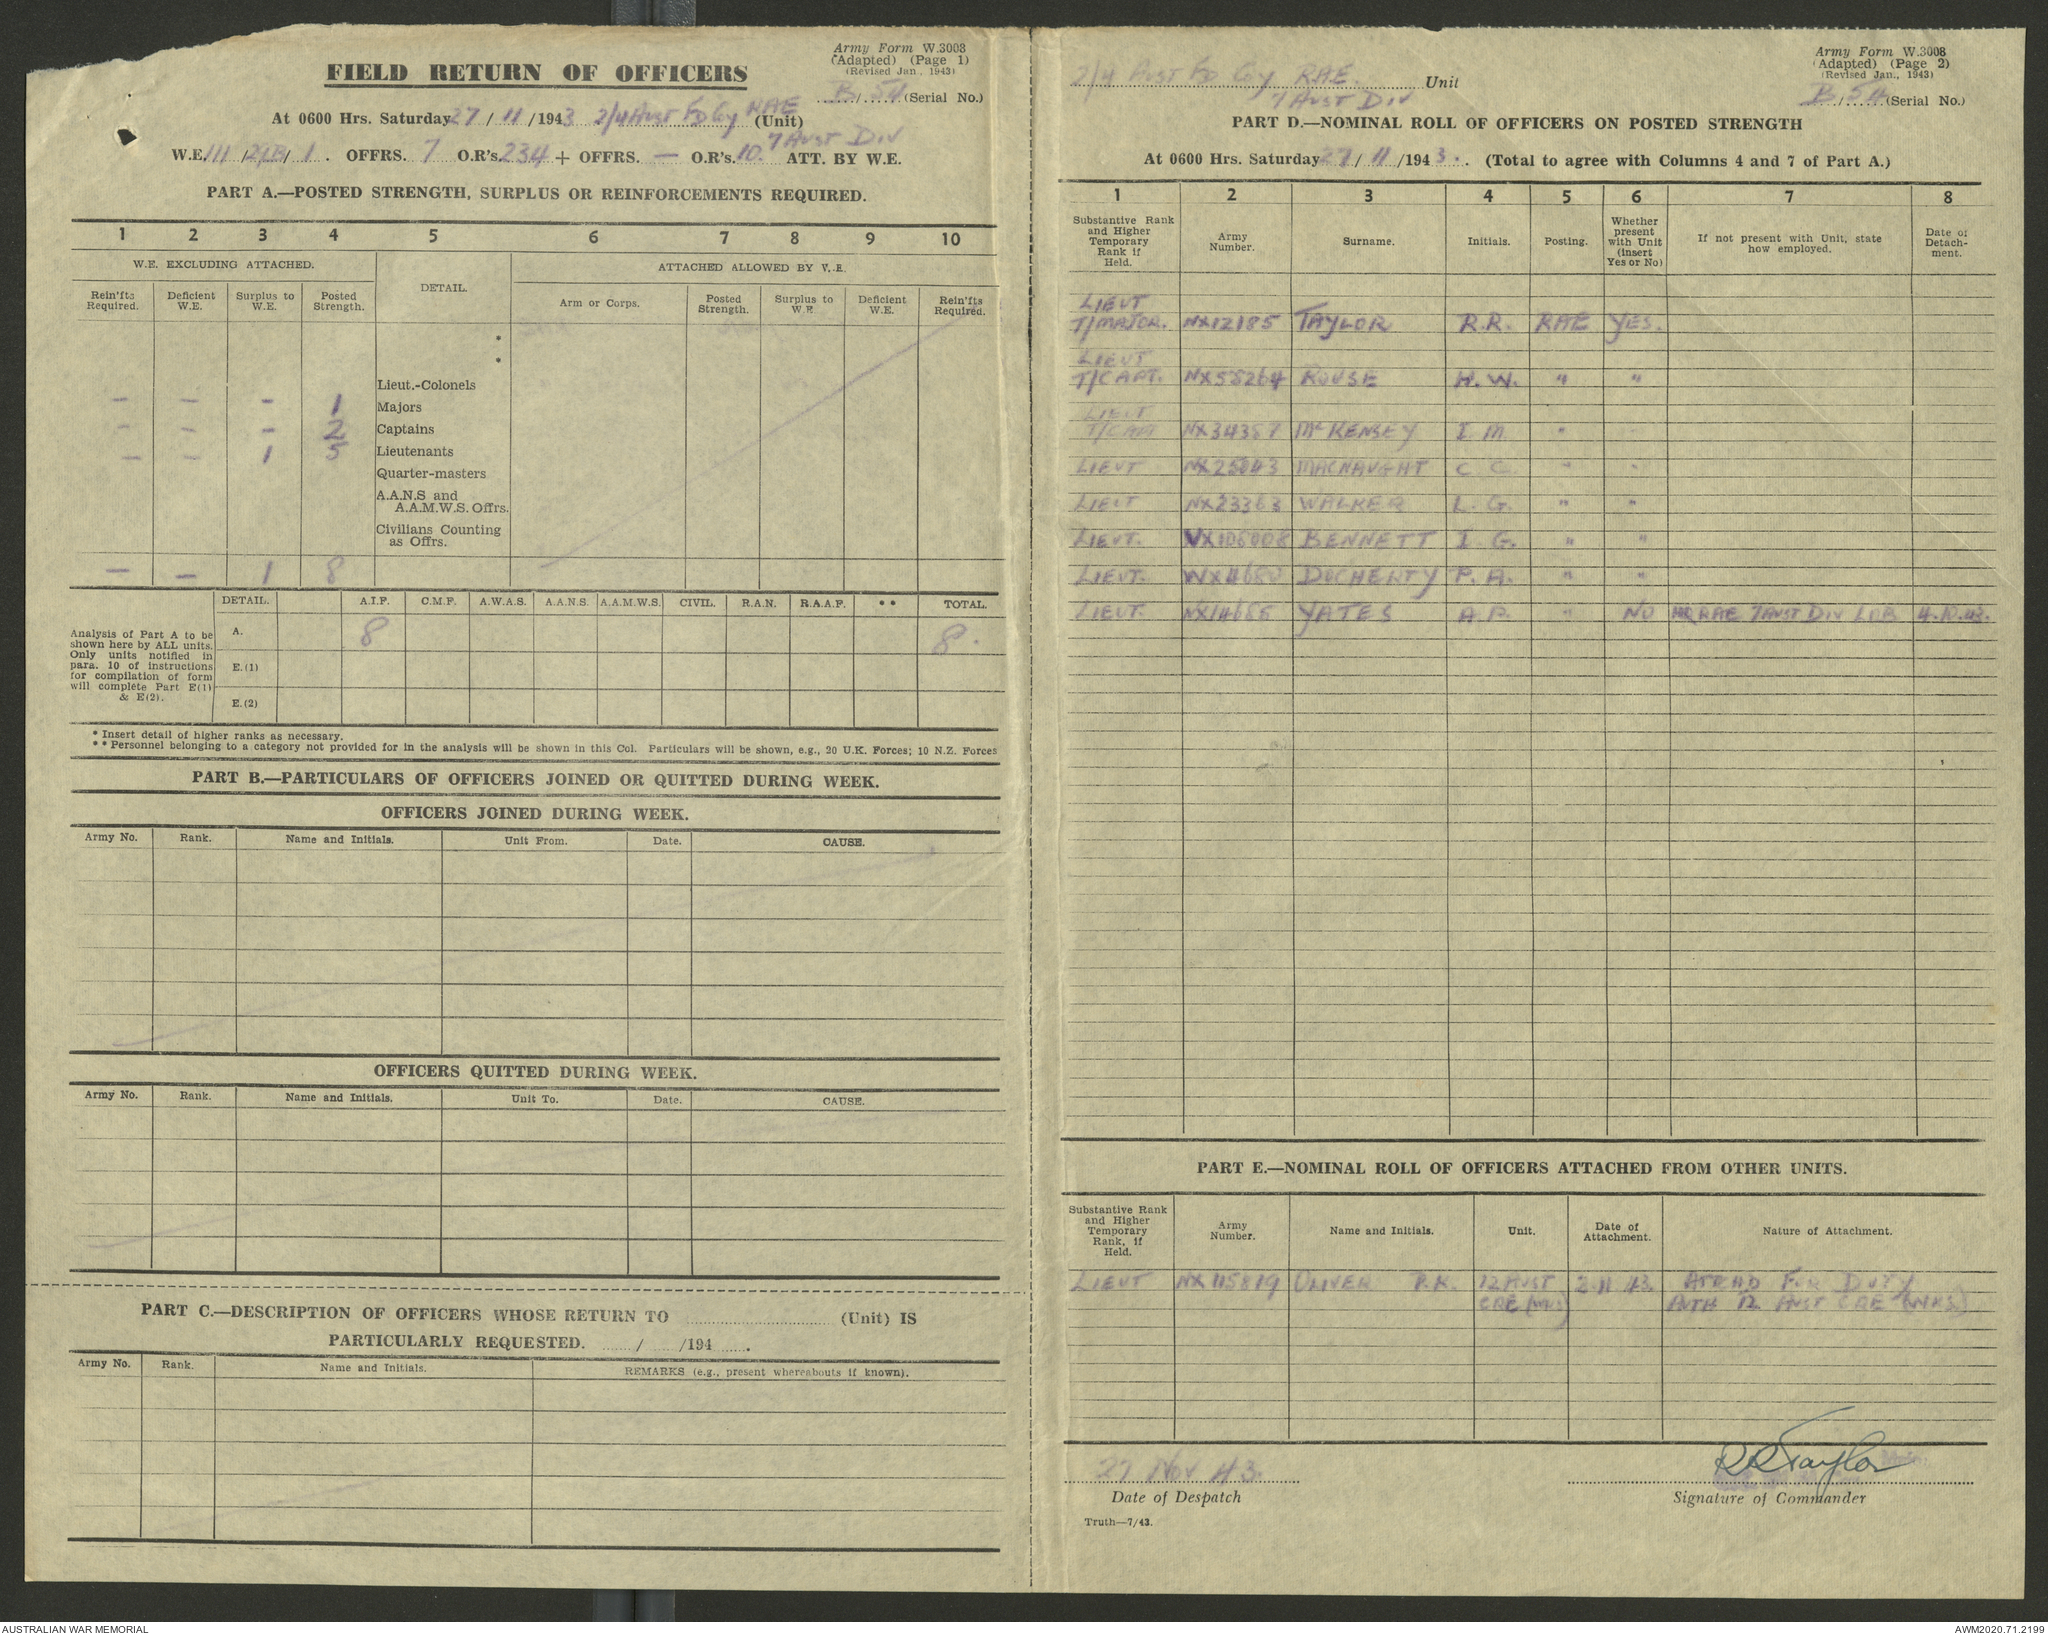 Army Form W.3008
(Adapted) (Page 1)
(Revised Jan., 1943)
FIELD RETURN OF OFFICERS
B/54 (Serial No.)
At 0600 Hrs. Saturday 27/11/1943 2/4 Aust Fd Coy RAE (Unit)
7 Aust Div
W.E. III/21B/1. OFFRS. 7 O.R's. 234 + OFFRS. — O.R's. 10. ATT. BY W.E.
PART A.—POSTED STRENGTH, SURPLUS OR REINFORCEMENTS REQUIRED.
1 2 3 4 5 6 7 8 9 10
W.E. EXCLUDING ATTACHED. DETAIL. ATTACHED ALLOWED BY W.E.
Rein'fts Required. Deficient W.E. Surplus to W.E. Posted Strength. Arm or Corps. Posted Strength. Surplus to W.E. Deficient W.E. Rein'fts Required.
*
*
Lieut.-Colonels
– – – 1 Majors
– – – 2 Captains
– – 1 5 Lieutenants
Quarter-masters
A.A.N.S and
A.A.M.W.S. Offrs.
Civilians Counting
as Offrs.
– – 1 8
DETAIL. A.I.F. C.M.F. A.W.A.S. A.A.N.S. A.A.M.W.S. CIVIL. R.A.N. R.A.A.F. ** TOTAL.
Analysis of Part A to be
shown here by ALL units.
Only units notified in
para. 10 of instructions
for compilation of form
will complete Part E(1)
& E(2).
A. 8 8.
E.(1)
E.(2)
* Insert detail of higher ranks as necessary.
** Personnel belonging to a category not provided for in the analysis will be shown in this Col. Particulars will be shown, e.g., 20 U.K. Forces; 10 N.Z. Forces
PART B.—PARTICULARS OF OFFICERS JOINED OR QUITTED DURING WEEK.
OFFICERS JOINED DURING WEEK.
Army No. Rank. Name and Initials. Unit From. Date. CAUSE.
OFFICERS QUITTED DURING WEEK.
Army No. Rank. Name and Initials. Unit To. Date. CAUSE.
PART C.—DESCRIPTION OF OFFICERS WHOSE RETURN TO .......... (Unit) IS
PARTICULARLY REQUESTED. ....../....../194.......
Army No. Rank. Name and Initials. REMARKS (e.g., present whereabouts if known).
Army Form W.3008
(Adapted) (Page 2)
(Revised Jan., 1943)
2/4 Aust Fd Coy RAE. Unit
7 Aust Div
B/54 (Serial No.)
PART D.—NOMINAL ROLL OF OFFICERS ON POSTED STRENGTH
At 0600 Hrs. Saturday 27/11/1943. (Total to agree with Columns 4 and 7 of Part A.)
1 2 3 4 5 6 7 8
Substantive Rank and Higher Temporary Rank if Held. Army Number. Surname. Initials. Posting. Whether present with Unit (insert Yes or No) If not present with Unit, state how employed. Date of Detach-ment.
LIEUT
T/MAJOR. NX12185 TAYLOR R.R. RAE YES.
LIEUT
T/CAPT. NX55264 ROUSE H.W. " "
LIEUT
T/CAPT NX34357 McKENSEY I M "
LIEUT NX25043 MACNAUGHT C C. " "
LIEUT NX23363 WALKER L. G. " "
LIEUT. VX105008 BENNETT I. G. " "
LIEUT. WX4680 DOCHERTY P. A. " "
LIEUT. NX14655 YATES A.P. " NO RAE 7 AUST DIV LOB 4.10.43.
PART E.—NOMINAL ROLL OF OFFICERS ATTACHED FROM OTHER UNITS.
Substantive Rank and Higher Temporary Rank, if Held. Army Number. Name and Initials. Unit. Date of Attachment. Nature of Attachment.
LIEUT NX115819 OLIVER R.K. 12 AUST 2.11.43. ATT'HD FOR DUTY
CRE (WKS) AUTH 12 AUST CRE (WKS)
27 Nov 43.
RRTaylor
Date of Despatch
Signature of Commander
Truth—7/43.
AUSTRALIAN WAR MEMORIAL
AWM2020.71.2199